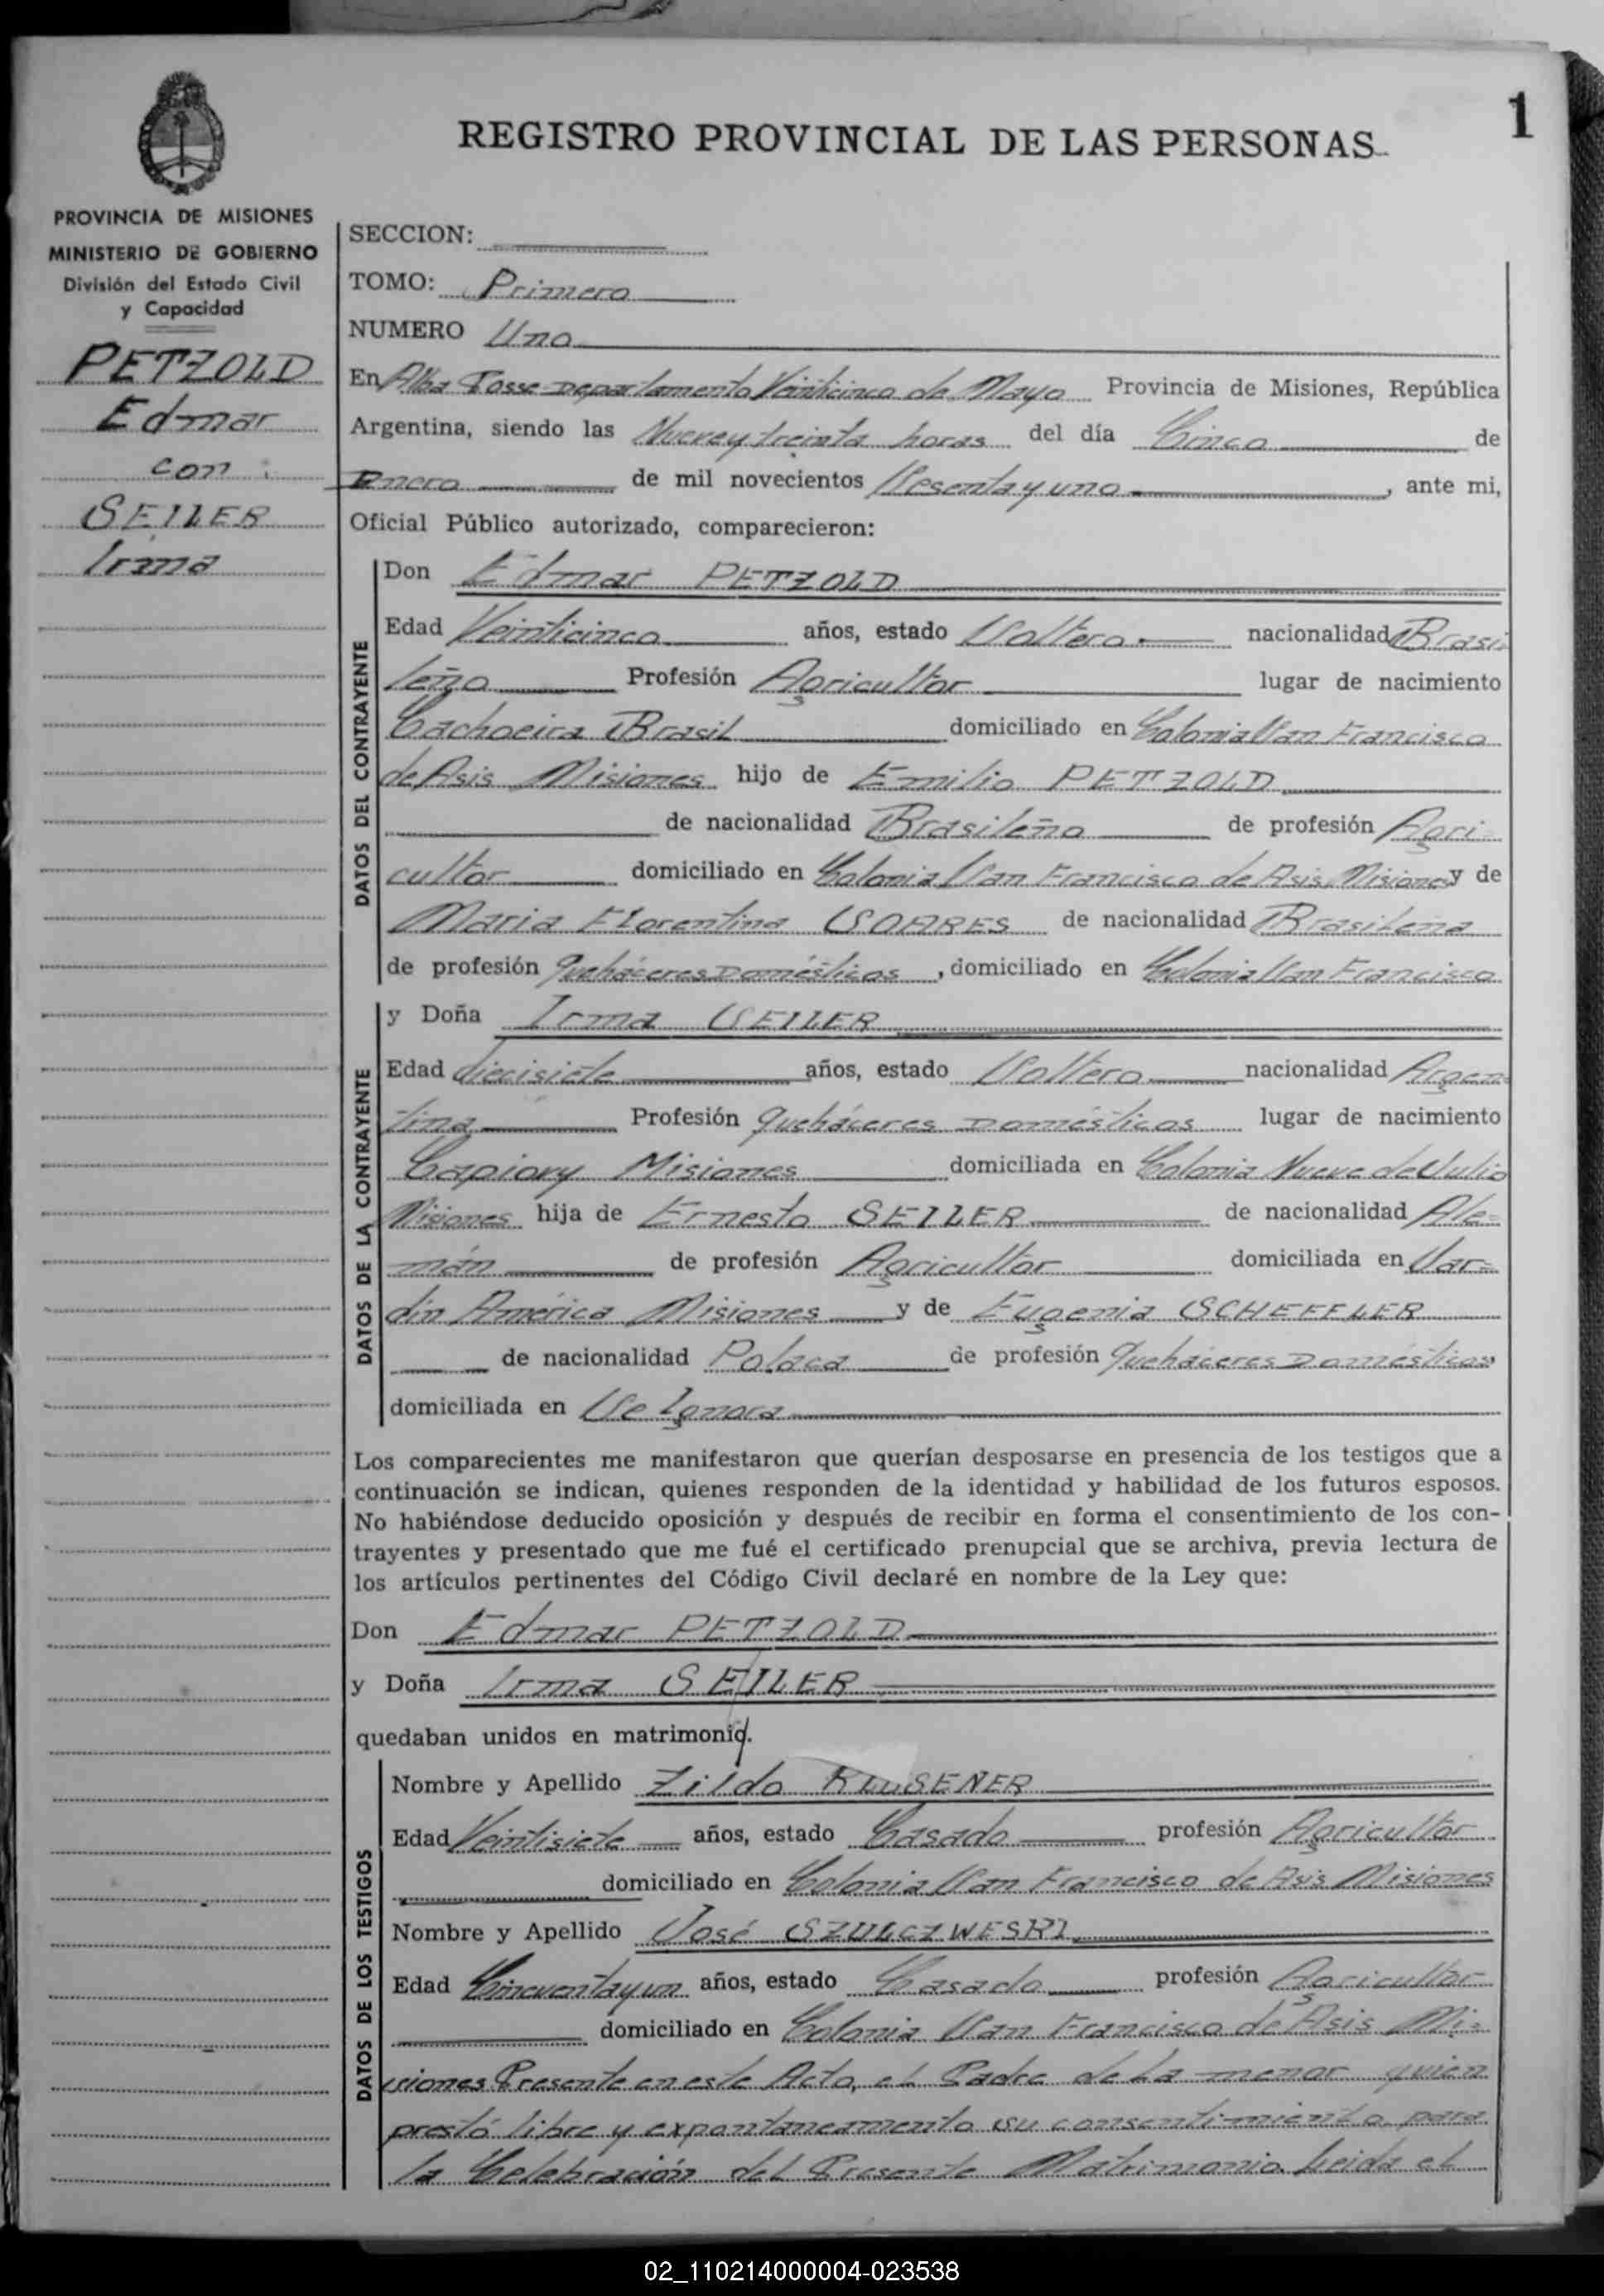 1
REGISTRO PROVINCIAL DE LAS PERSONAS
PROVINCIA DE MISIONES
MINISTERIO DE GOBIERNO
División del Estado Civil
y Capacidad
PETZOLD
Edmar
con
SEILER
Irma
SECCION:
TOMO: Primero
NUMERO Uno
En Alba Posse Departamento Veinticinco de Mayo Provincia de Misiones, República
Argentina, siendo las Nueve y treinta horas del día Cinco de
Enero de mil novecientos Sesenta y uno, ante mi,
Oficial Público autorizado, comparecieron:
DATOS DEL CONTRAYENTE
Don Edmar PETZOLD
Edad Veinticinco años, estado Soltero nacionalidad Brasi
leño Profesión Agricultor lugar de nacimiento
Cachoeira Brasil domiciliado en Colonia San Francisco
de Asis Misiones hijo de Emilio PETZOLD
de nacionalidad Brasileño de profesión Agri-
cultor domiciliado en Colonia San Francisco de Asis Misiones y de
Maria Florentina SOARES de nacionalidad Brasileña
de profesión Quehaceres Domésticos, domiciliado en Colonia San Francisco
DATOS DE LA CONTRAYENTE
y Doña Irma SEILER
Edad diecisiete años, estado Soltera nacionalidad Argen-
tina Profesión Quehaceres Domésticos lugar de nacimiento
Capiovy Misiones domiciliada en Colonia Nueve de Julio
Misiones hija de Ernesto SEILER de nacionalidad Ale-
mán de profesión Agricultor domiciliada en Jar-
din América Misiones y de Eugenia SCHEFFLER
de nacionalidad Polaca de profesión Quehaceres Domésticos
domiciliada en Se Ignora
Los comparecientes me manifestaron que querían desposarse en presencia de los testigos que a
continuación se indican, quienes responden de la identidad y habilidad de los futuros esposos.
No habiéndose deducido oposición y después de recibir en forma el consentimiento de los con-
trayentes y presentado que me fué el certificado prenupcial que se archiva, previa lectura de
los artículos pertinentes del Código Civil declaré en nombre de la Ley que:
Don Edmar PETZOLD
y Doña Irma SEILER
quedaban unidos en matrimonio.
DATOS DE LOS TESTIGOS
Nombre y Apellido Zildo KLUSENER
Edad Veintisiete años, estado Casado profesión Agricultor
domiciliado en Colonia San Francisco de Asis Misiones
Nombre y Apellido José SZULCZWESKI
Edad Cincuentayun años, estado Casado profesión Agricultor
domiciliado en Colonia San Francisco de Asis Mi-
siones Presente en este Acto, el Padre de La menor quien
prestó libre y expontaneamente su consentimiento para
la Celebración del Presente Matrimonio Leida el
02_110214000004-023538